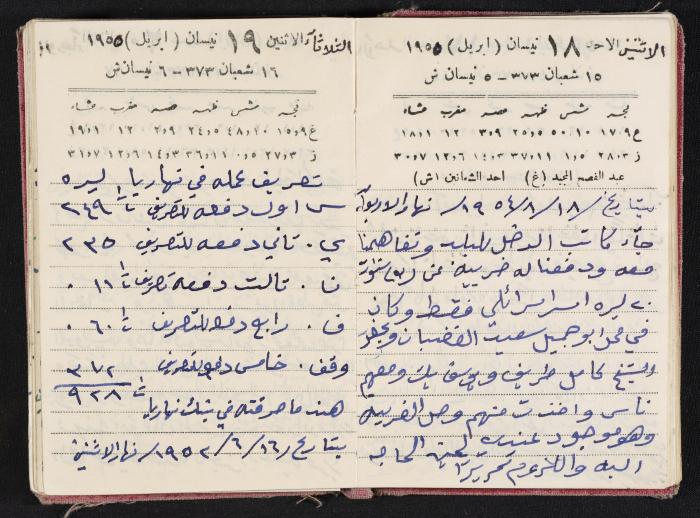 الاثنين الاحد ١٨ نيسان (ابريل) ١٩٥٥
١٥ شعبان ٣٧٣ – ٥ نيسان ش
فجر شمس ظهر عصر مغرب عشاء
ع ٩ر١٧ ١٠ر٥٠ ٥ر٢٥ ٩ر٣ ١٢ ١ر١٨
ز ٣ر٢٨ ٥ر١ ١١ر٣٧ ٣ر١٤ ٦ر١٢ ٧ر٣٠
عيد الفصح المجيد (غ) احد الشعانين (ش)
بتاريخ /١٨/٨/١٩٥٤ نهار الاربعاء
جاء كاتب الدخل للبلد وتفاهمنا
معه ودفعنا له ضريبة عن اربع سنوات
٢٠ ليره اسرائيلي فقط وكان
في محل ابو جميل سعيد القضبان وبحضور
الشيخ كامل طريف ويوسف بك ومعهم
ناس واخذت منهم وصل الضريبه
وهو موجود عندي لحين الحاجه
اليه واللزوم تحريراً
الثلاثاء الاثنين ١٩ نيسان (ابريل) ١٩٥٥
١٦ شعبان ٣٧٣ – ٦ نيسان ش
فجر شمس ظهر عصر مغرب عشاء
غ ٩ر١٥ ١٠ر٤٨ ٥ر٢٤ ٩ر٢ ١٢ ١ر١٩
ز ٣ر٢٧ ٥ر٠ ١١ر٣٦ ٣ر١٤ ٦ر١٢ ٧ر٣١
تصريف عمله في نهاريا ليره
س اول دفعه للتصريف ٢٤٩
ي. تاني دفعه للتصريف ٢٣٥
ن. تالت دفعه تصريف ١١٠
ف. رابع دفعه للتصريف ٦٠.
وقف. خامس دفعه للتصريف ٣٧٢
٩٢٨
هذا ما صرفته في بنك نهاريا
بتاريخ /١٦/٦/١٩٥٢ نهار الاثنين